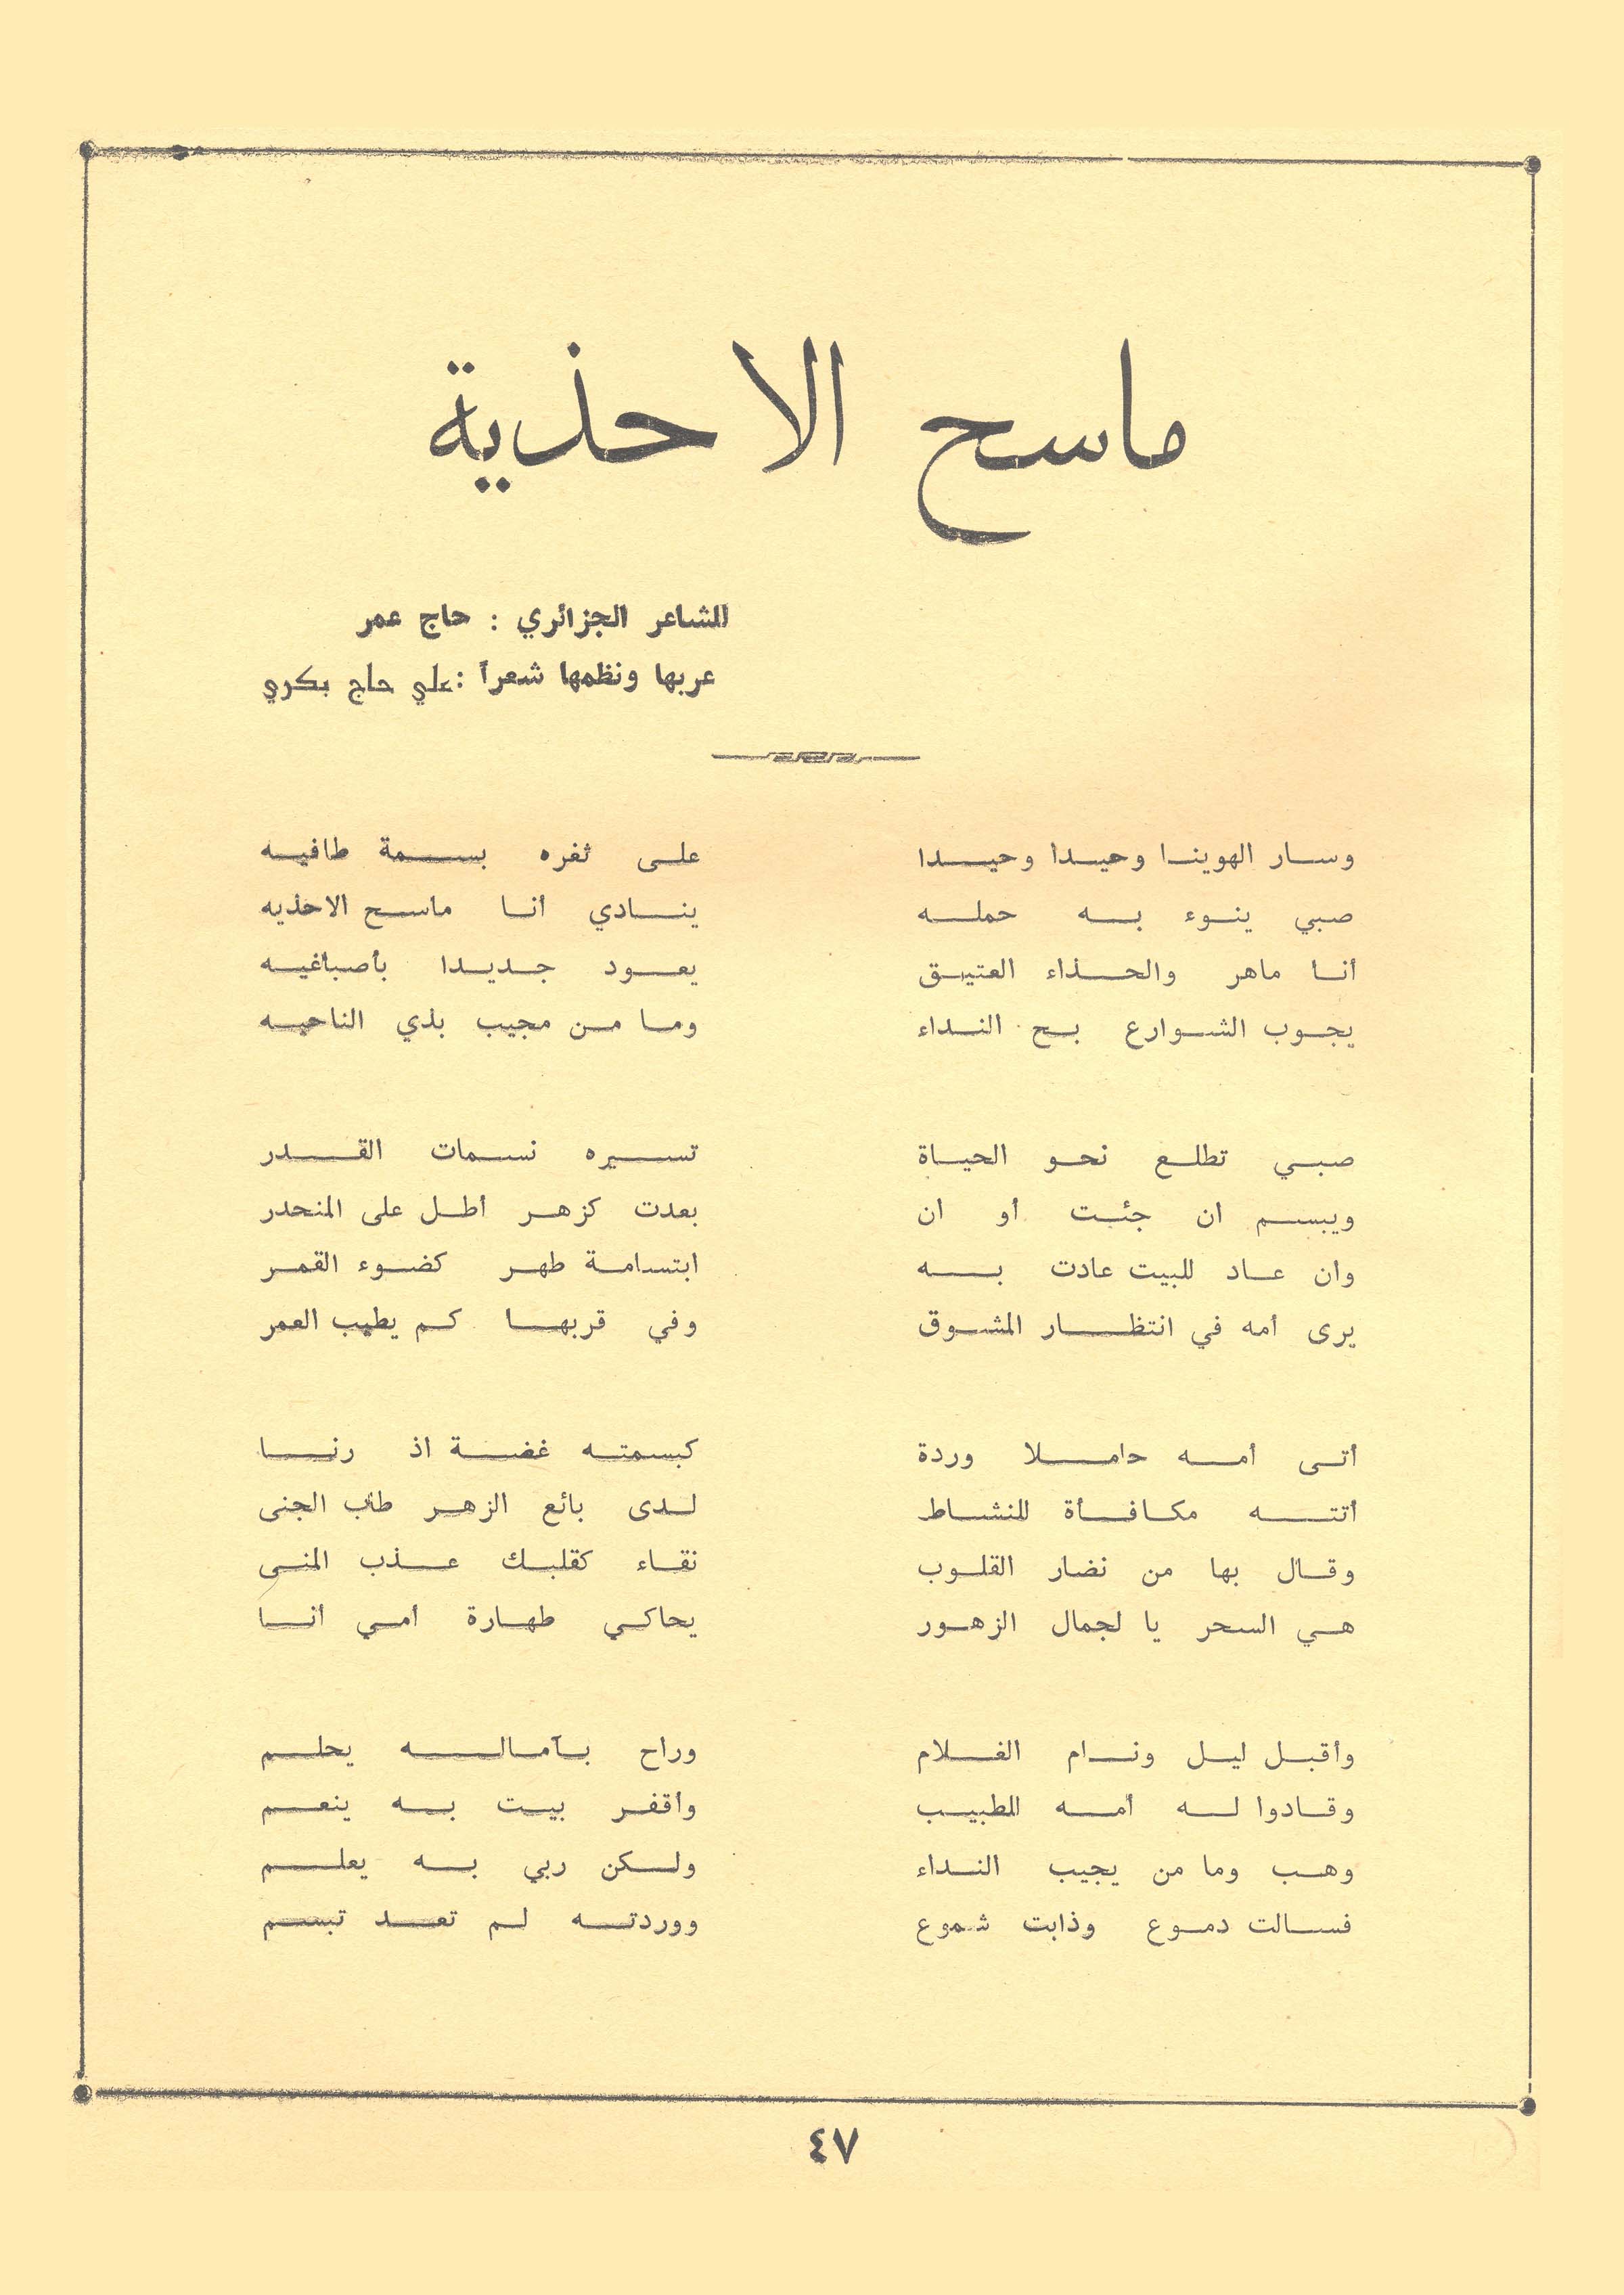 ماسح الاحذية
للشاعر الجزائري : حاج عمر
عربها ونظمها شعراً : علي حاج بكري
وسار الهوينا وحيدا وحيدا على ثغره بسمة طافيه
صبي ينوء به حمله ينادي أنا ماسح الاحذيه
أنا ماهر والحذاء العتيق يعود جديدا بأصباغيه
يجوب الشوارع بح النداء وما من مجيب بذي الناحيه
صبي تطلع نحو الحياة تسيره نسمات القدر
ويبسم ان جئت أو ان بعدت كزهر أطل على المنحدر
وان عاد للبيت عادت به ابتسامة طهر كضوء القمر
يرى أمه في انتظار المشوق وفي قربها كم يطيب العمر
أتى أمه حاملا وردة كبسمته غضة اذ رنا
أتته مكافأة للنشاط لدى بائع الزهر طاب الجنى
وقال بها من نضار القلوب نقاء كقلبك عذب المنى
هي السحر يا لجمال الزهور يحاكي طهارة أمي أنا
وأقبل ليل ونام الغلام وراح بآماله يحلم
وقادوا له أمه للطبيب وأقفر بيت به ينعم
وهب وما من يجيب النداء ولكن ربي به يعلم
فسالت دموع وذابت شموع ووردته لم تعد تبسم
٤٧